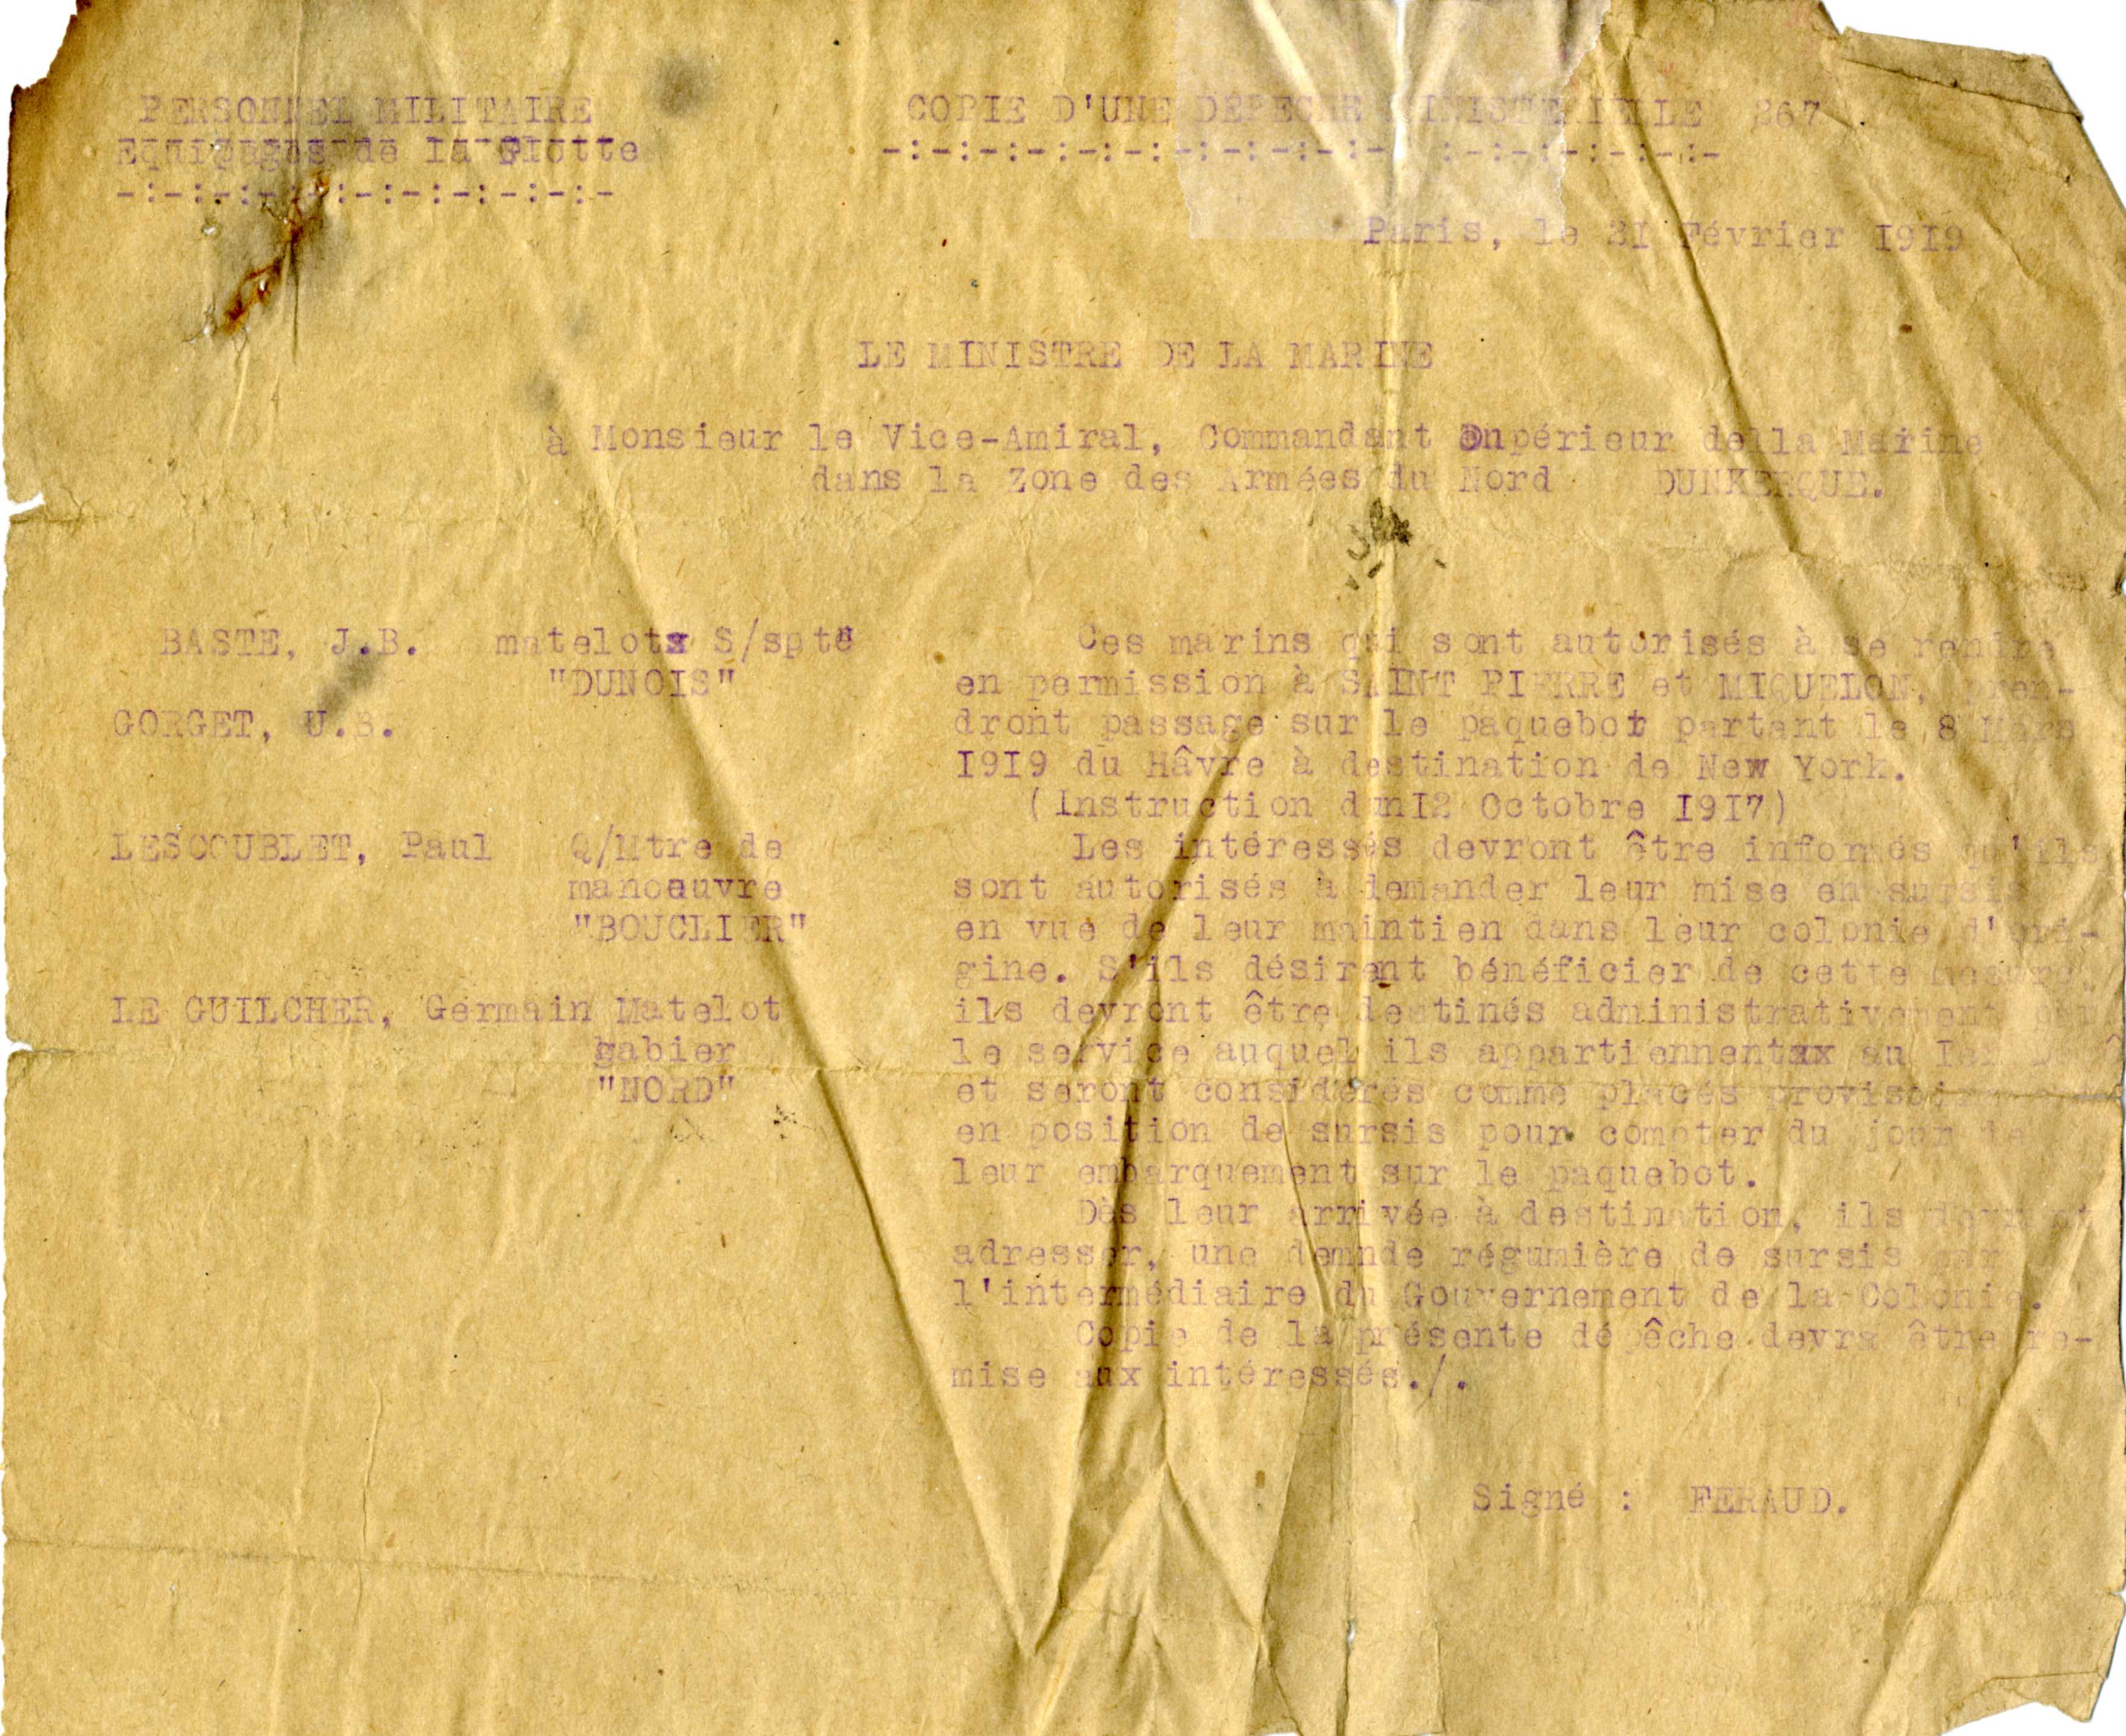 PERSONNEL MILITAIRE
Equipages de la Flotte
-:-:-:-:-:-:-:-:-:-:-
COPIE D'UNE DEPECHE MINISTERIELLE 267
-:-:-:-:-:-:-:-:-:-:-:-:-:-:-:-:-:-
Paris, le 21 Février 1919
LE MINISTRE DE LA MARINE
à Monsieur le Vice-Amiral, Commandant Supérieur della Marine
dans la Zone des Armées du Nord DUNKERQUE.
BASTE, J.B. matelots S/spts
"DUNOIS"
GORGET, U.S.
LESCOUBLET, Paul Q/Mtre de
manoeuvre
"BOUCLIER"
LE GUILCHER, Germain Matelot
gabier
"NORD"
Ces marins qui sont autorisés à se rendre
en permission à SAINT PIERRE et MIQUELON, pren-
dront passage sur le paquebot partant le 8 Mars
1919 du Hâvre à destination de New York.
(Instruction dun12 Octobre 1917)
Les intéressés devront être informés qu'ils
sont autorisés à demander leur mise en sursis
en vue de leur maintien dans leur colonie d'ori-
gine. S'ils désirent bénéficier de cette mesure,
ils devront être destinés administrativement par
le service auquel ils appartiennentxx au 1er
et seront considérés comme placés
en position de sursis pour compter du jour de
leur embarquement sur le paquebot.
Dès leur arrivée à destination, ils devront
adresser, une demnde régumière de sursis par
l'intermédiaire du Gouvernement de la Colonie.
Copie de la présente dépêche devra être re-
mise aux intéressés./.
Signé : FERAUD.